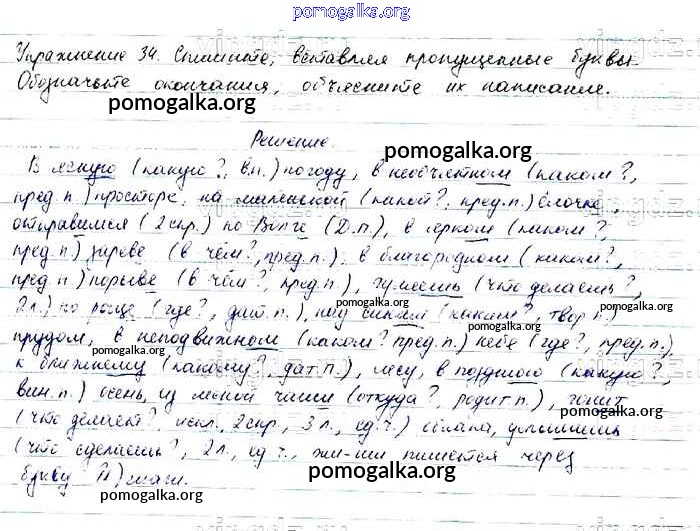 pomogalka.org
Упражнение 34. Спишите, вставляя пропущенные буквы.
Обозначьте окончания, объясните их написание.
pomogalka.org
Решение.
pomogalka.org
В ясную (какую?, в.п.) погоду, в необъятном (каком?,
пред.п.) просторе, на маленькой (какой?, пред.п.) ёлочке,
отправимся (2 спр.) по Волге (Д.п.), в (каком?,
пред.п.) (в чём?, пред.п.), в благородном (каком?,
pomogalka.org
пред.п.) порыве (в чём?, пред.п.), гуляешь (что делаешь?,
2 л.) по роще (где?, дат.п.), над синим (каким?, твор.п.)
pomogalka.org
прудом, в неподвижном (каком? пред.п.) небе (где?, пред.п.),
pomogalka.org
к ближнему (какому?, дат.п.), лесу, в позднюю (какую?,
вин.п.) осень, из лесной чащи (откуда?, родит.п.), гонит
(что делает?, искл., 2 спр., 3 л., ед.ч.) облака, услышишь
(что сделаешь?, 2 л., ед.ч., жи-ши пишется через
pomogalka.org
букву И) шаги.
pomogalka.org
pomogalka.org